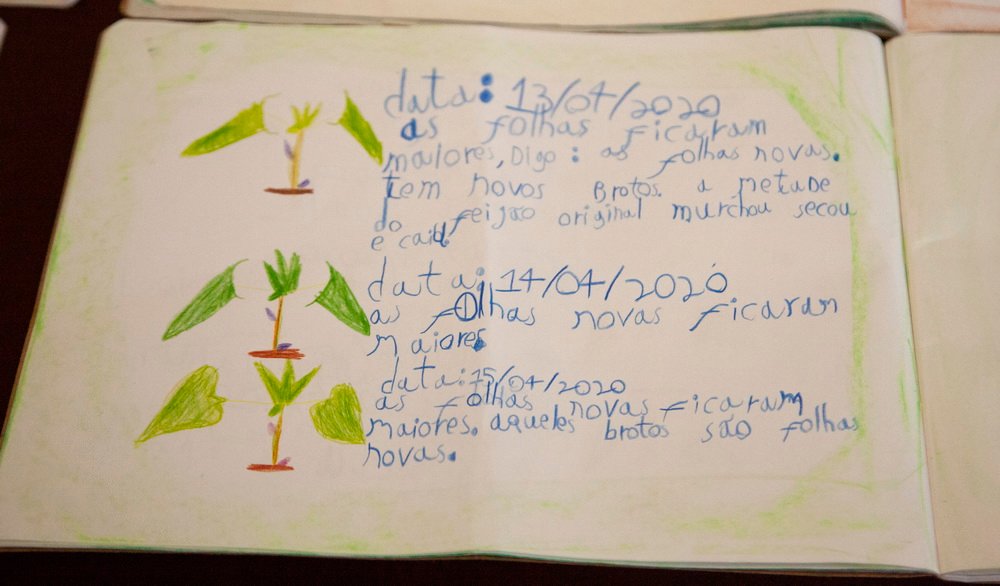 data: 13/04/2020
as folhas ficaram
maiores, Digo: as folhas novas.
tem novos Brotos. a metaDe
do feijão original murchou secou
e caiu.
data: 14/04/2020
as folhas novas ficaram
maiores
data: 15/04/2020
as folhas novas ficaram
maiores. aqueles brotos são folhas
novas.